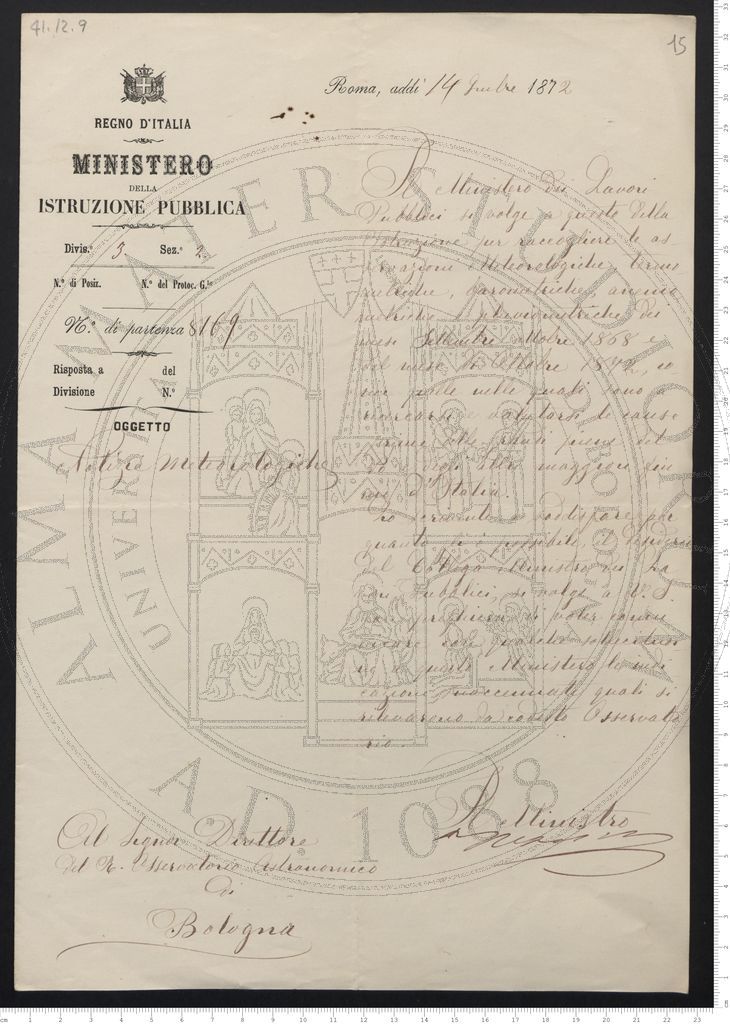 41.12.9
15
Roma, addì 14 9mbre 1872
REGNO D'ITALIA
MINISTERO
DELLA
ISTRUZIONE PUBBLICA
Divis.e 3 Sez.e 2
N.o di Posiz. N.o del Protoc. G.le
N.o di partenza 8169
Risposta a del
Divisione N.o
OGGETTO
Notizie Meteorologiche
Il Ministero dei Lavori
Pubblici si volge a questo della
Istruzione per raccogliere le os
servazioni Meteorologiche, termo
metriche, barometriche, anemo
metriche e pluviometriche dei
mesi Settembre Ottobre 1868 e
del mese di Ottobre 1872, co
me quelle nelle quali sono a
ricercarsi e valutarsi le cause
piene dei
maggiori fiu
mi d'Italia.
Lo scrivente a soddisfare, per
quanto è possibile, il desiderio
del Collega Ministro dei La
vori Pubblici, si volge a V. S.
di voler comu
nicare con qualche sollecitudi
ne a questo Ministero le indi
cazioni suaccennate quali si
rilevarono da codesto Osservato
rio.
Il Ministro
Al Signor Direttore
del R. Osservatorio Astronomico
di
Bologna
ALMA MATER STUDIORUM
UNIVERSITÀ DI BOLOGNA
A.D. 1088